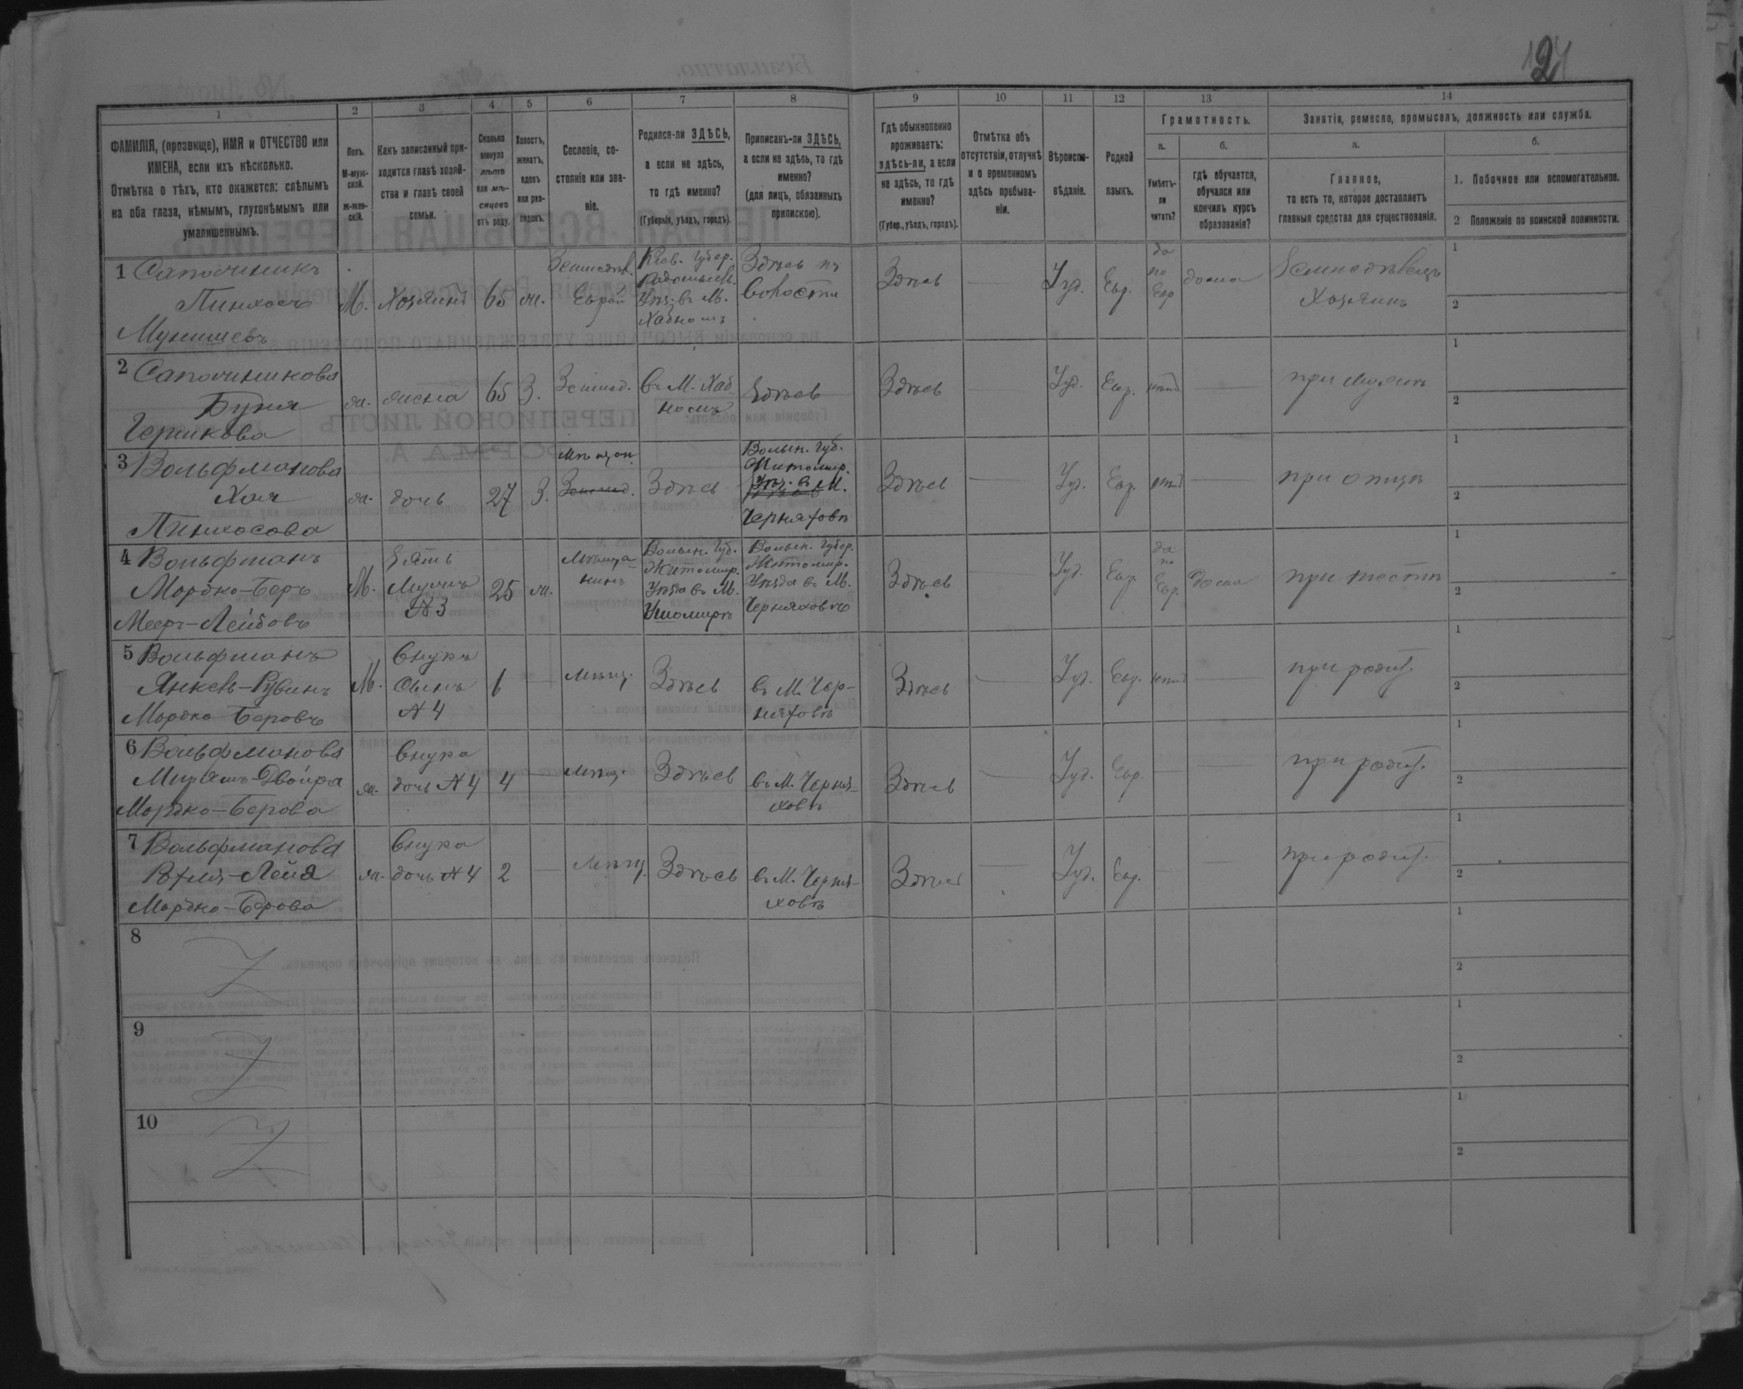 124
1 2 3 4 5 6 7 8 9 10 11 12 13 14
ФАМИЛІЯ, (прозвище), ИМЯ и ОТЧЕСТВО или
ИМЕНА, если ихъ нѣсколько.
Отмѣтка о тѣхъ, кто окажется: слѣпымъ
на оба глаза, нѣмымъ, глухонѣмымъ или
умалишеннымъ.
Полъ.
М-муж-
ской.
ж-жен-
скій.
Какъ записанный при-
ходится главѣ хозяй-
ства и главѣ своей
семьи.
Сколько
минуло
лѣтъ
или мѣ-
сяцевъ
отъ роду.
Холостъ,
женатъ,
вдовъ
или раз-
веденъ.
Сословіе, со-
стояніе или зва-
ніе.
Родился-ли ЗДѢСЬ,
а если не здѣсь,
то гдѣ именно?
(Губернія, уѣздъ, городъ).
Приписанъ-ли ЗДѢСЬ,
а если не здѣсь, то гдѣ
именно?
(для лицъ, обязанныхъ
припискою).
Гдѣ обыкновенно
проживаетъ:
здѣсь-ли, а если
не здѣсь, то гдѣ
именно?
(Губер., уѣздъ, городъ).
Отмѣтка объ
отсутствіи, отлучкѣ
и о временномъ
здѣсь пребыва-
ніи.
Вѣроиспо-
вѣданіе.
Родной
языкъ.
Грамотность.
а.
Умѣетъ-
ли
читать?
б.
гдѣ обучается,
обучался или
кончилъ курсъ
образованія?
Занятія, ремесло, промыселъ, должность или служба.
а.
Главное,
то есть то, которое доставляетъ
главныя средства для существованія.
б.
1. Побочное или вспомогательное.
2 Положеніе по воинской повинности.
1 Сапожникъ
Пинхосъ
М. Хозяинъ 65 ж.
Еврей
Кіев. Губер.
Радомысль.
Уѣз. въ М.
Хабномъ
Здѣсь въ
Волости
Здѣсь — Іуд. Евр.
да
по
Евр
дома
Земледѣлецъ
Хозяинъ
1
2
2 Сапожникова
Буня
Герцкова
ж. жена 65 З. Землед.
въ М. Хаб
номъ
Здѣсь
Здѣсь — Іуд. Евр. нѣтъ —
при мужѣ
1
2
3 Вольфманова
Хая
Пинхосова
ж. дочь 27 З.
Мѣщан.
Землед.
Здѣсь
Волын. Губ.
Житомир.
Уѣз. въ М.
Черняховѣ
Здѣсь — Іуд. Евр. нѣтъ —
при отцѣ
1
2
4 Вольфманъ
Мордко-Беръ
Меер-Лейбовъ
М.
Зять
Мужъ
№ 3
25 ж.
Мѣща
нинъ
Волын. Губ.
Житомир.
Уѣзда въ М.
Ушомирѣ
Волын. Губер.
Житомир.
Уѣзда въ М.
Черняховѣ
Здѣсь — Іуд. Евр.
да
по
Евр.
дома
при тестѣ
1
2
5 Вольфманъ
Янкель-Рувинъ
Мордко Беровъ
М.
Внукъ
Сынъ
№ 4
6 — мѣщ. Здѣсь
въ М. Чер-
няховѣ
Здѣсь — Іуд. Евр. нѣтъ —
при родит.
1
2
6 Вольфманова
Мирьямъ-Двойра
Мордко-Берова
ж.
Внука
дочь № 4
4 — мѣщ. Здѣсь
въ М. Черня-
ховѣ
Здѣсь — Іуд. Евр. — —
при родит.
1
2
7 Вольфманова
Рухля-Лейя
Мордко-Берова
ж.
Внука
дочь № 4
2 — мѣщ. Здѣсь
въ М. Черня-
ховѣ
Здѣсь — Іуд. Евр. —
при родит.
1
2
8
1
2
9
1
2
10
1
2